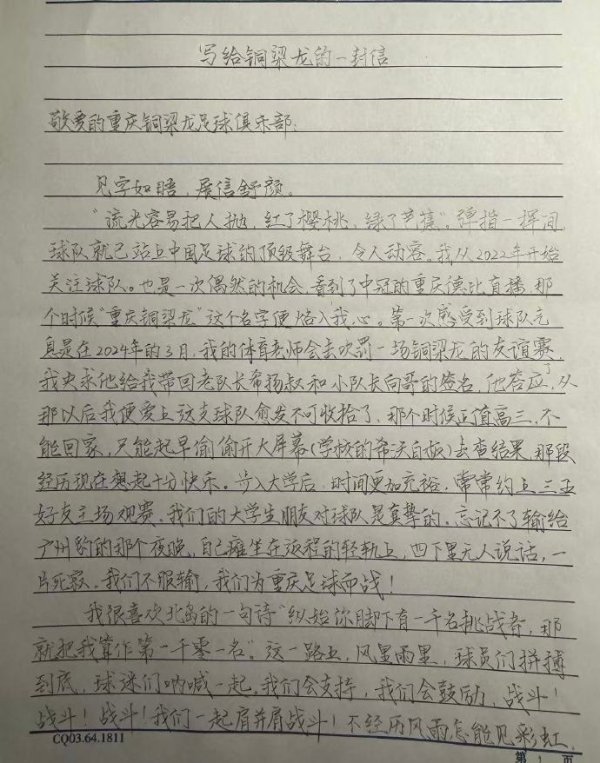 写给铜梁龙的一封信
敬爱的重庆铜梁龙足球俱乐部:
见字如晤，展信舒颜。
"流光容易把人抛，红了樱桃，绿了芭蕉"。弹指一挥间
球队就已站上中国足球的顶级舞台，令人动容。我从2022年开始
关注球队。也是一次偶然的机会，看到了中冠的重庆德比直播，那
个时候"重庆铜梁龙"这个名字便烙入我心。第一次感受到球队气
息是在2024年的3月，我的体育老师会去吹罚一场铜梁龙的友谊赛，
我央求他给我带回老队长希扬叔和小队长向哥的签名，他答应了，从
那以后我便爱上这支球队愈发不可收拾了，那个时候正值高三，不
能回家，只能起早偷偷开大屏幕(学校的希沃白板)去查结果，那段
经历现在想起十分快乐。步入大学后，时间更加充裕，常常约上三五
好友主场观赛，我们的大学生朋友对球队是真挚的，忘记不了输给
广州豹的那个夜晚，自己瘫坐在返程的轻轨上，四下里无人说话，一
片死寂，我们不服输，我们为重庆足球而战！
我很喜欢北岛的一句诗"纵始你脚下有一千名挑战者，那
就把我算作第一千零一名"。这一路上，风里雨里，球员们拼搏
到底，球迷们呐喊一起，我们会支持，我们会鼓励，战斗！
战斗！战斗！我们一起肩并肩战斗！不经历风雨怎能见彩虹，
CQ03.64.1811
第 1 页